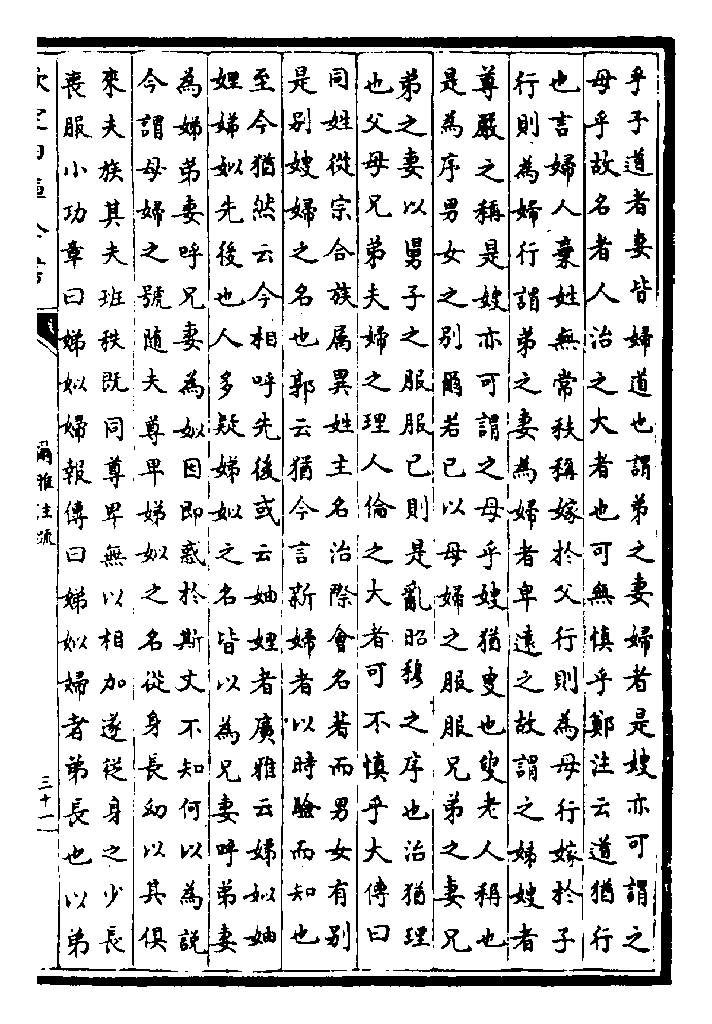 乎子道者妻皆婦道也謂弟之妻婦者是嫂亦可謂之
母乎故名者人治之大者也可無慎乎鄭注云道猶行
也言婦人棄姓無常秩稱嫁於父行則為母行嫁於子
行則為婦行謂弟之妻為婦者卑遠之故謂之婦嫂者
尊嚴之稱是嫂亦可謂之母乎嫂猶叟也叟老人稱也
是為序男女之別爾若已以母婦之服服兄弟之妻兄
弟之妻以舅子之服服已則是亂昭穆之序也治猶理
也父母兄弟夫婦之理人倫之大者可不慎乎大傳曰
同姓從宗合族屬異姓主名治際會名著而男女有別
是別嫂婦之名也郭云猶今言新婦者以時驗而知也
至今猶然云今相呼先後或云妯娌者廣雅云娣姒妯
娌娣姒先後也人多疑娣姒之名皆以為兄妻呼弟妻
為娣弟妻呼兄妻為姒因即惑於斯文不知何以為說
今謂母婦之號隨夫尊卑娣姒之名從身長幼以其俱
來夫族其夫班秩既同尊卑無以相加遂從身之少長
喪服小功章曰娣姒婦報傳曰娣姒婦者弟長也以弟
欽定四庫全書
爾雅注疏
三十二